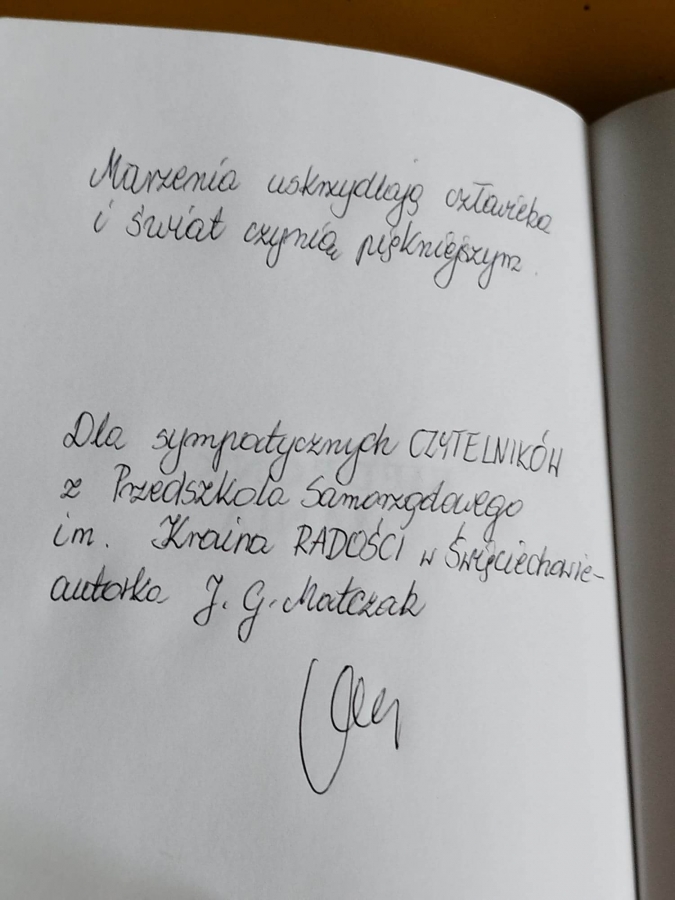 Marzenia uskrzydlają człowieka
i świat czynią piękniejszym.
Dla sympatycznych CZYTELNIKÓW
z Przedszkola Samorządowego
im. Kraina RADOŚCI w Święciechowie-
autorka J. G. Matczak